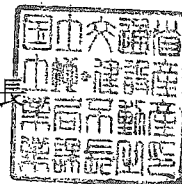 長
国土交通省
土地・建設産
業局不動産
業課長之印